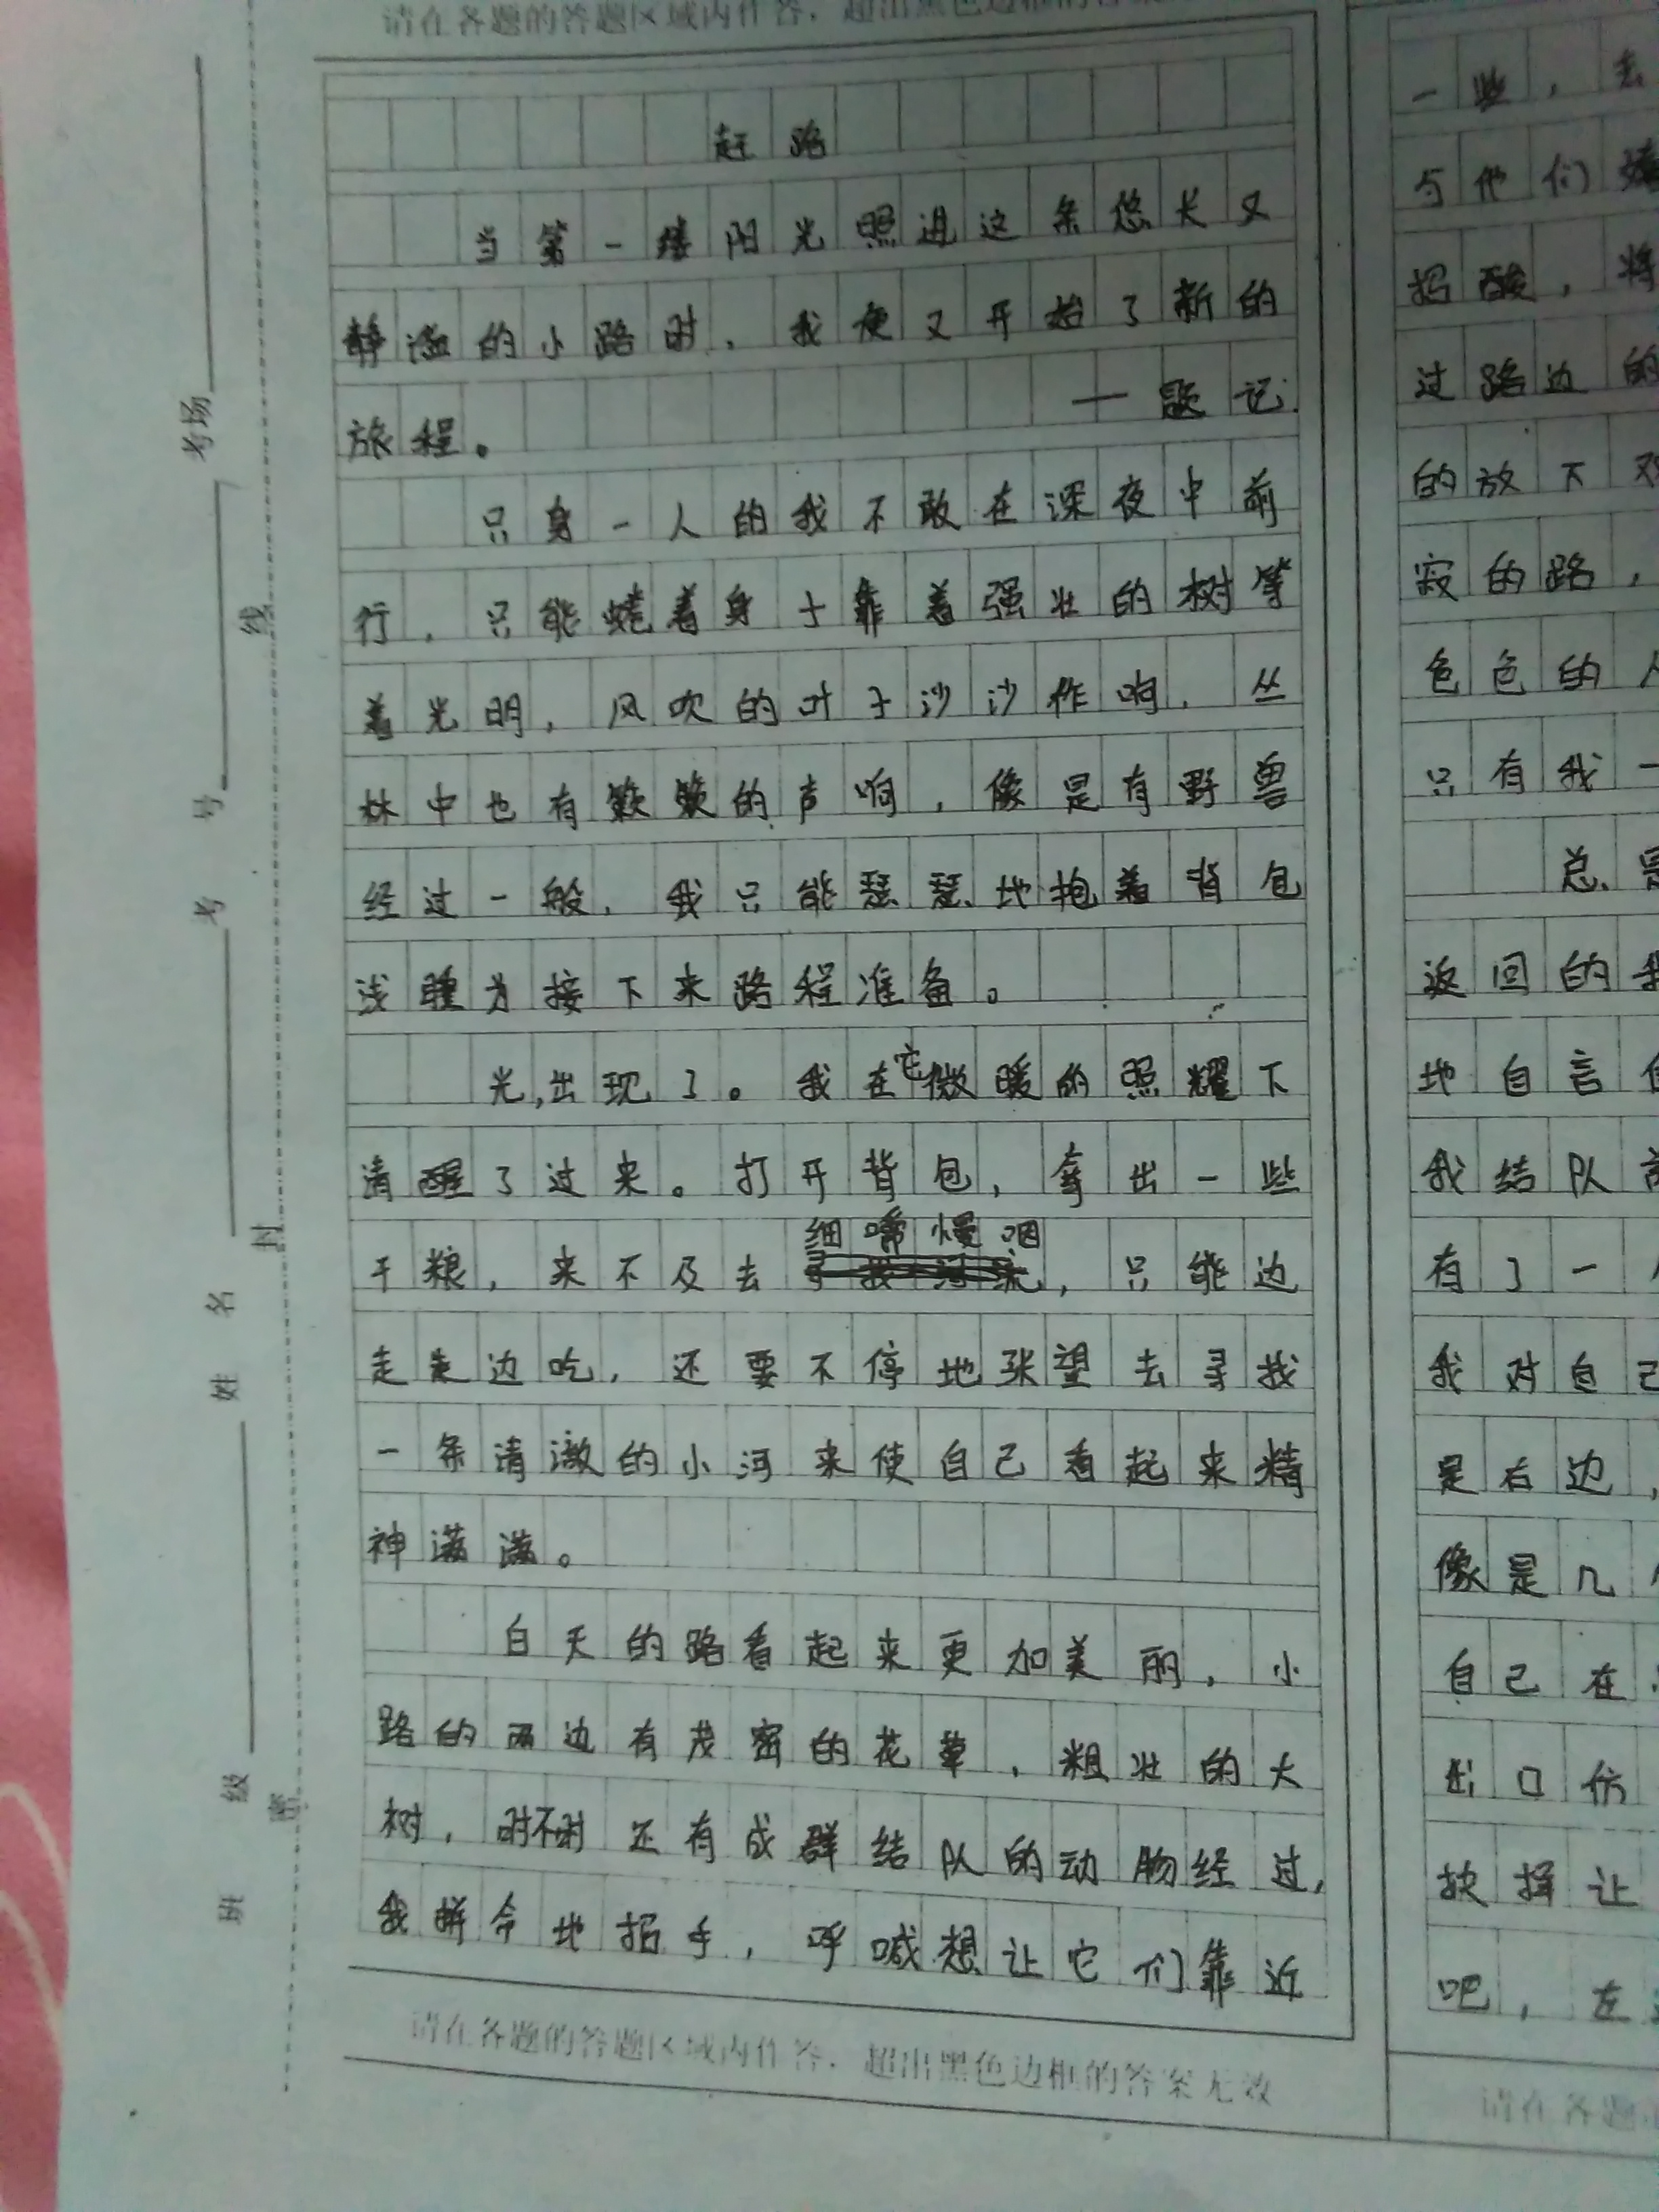 请在各题的答题区域内作答，超出黑色边框的答案
赶路
当第一缕阳光照进这条悠长又
静谧的小路时，我便又开始了新的
旅程。 ——题记
只身一人的我不敢在深夜中前
行，只能蜷着身子靠着强壮的树等
着光明，风吹的叶子沙沙作响，丛
林中也有簌簌的声响，像是有野兽
经过一般，我只能瑟瑟地抱着背包
浅睡为接下来路程准备。
光出现了。我在它微暖的照耀下
清醒了过来。打开背包，拿出一些
干粮，来不及去细嚼慢咽，只能边
走走边吃，还要不停地张望去寻找
一条清澈的小河来使自己看起来精
神满满。
白天的路看起来更加美丽，小
路的两边有茂密的花草，粗壮的大
树，时不时还有成群结队的动物经过，
我拼命地招手，呼喊想让它们靠近
请在各题的答题区域内作答，超出黑色边框的答案无效
一些，去
与他们
招酸，将
过路边的
的放下
寂的路，
色色的人
只有我一
总是
返回的我
地自言自
我结队
有了一个
我对自己
是右边，
像是几个
自己在
出口仿
抉择让
吧，左
请在各题
考场
考号
姓名
班级
密
封
线